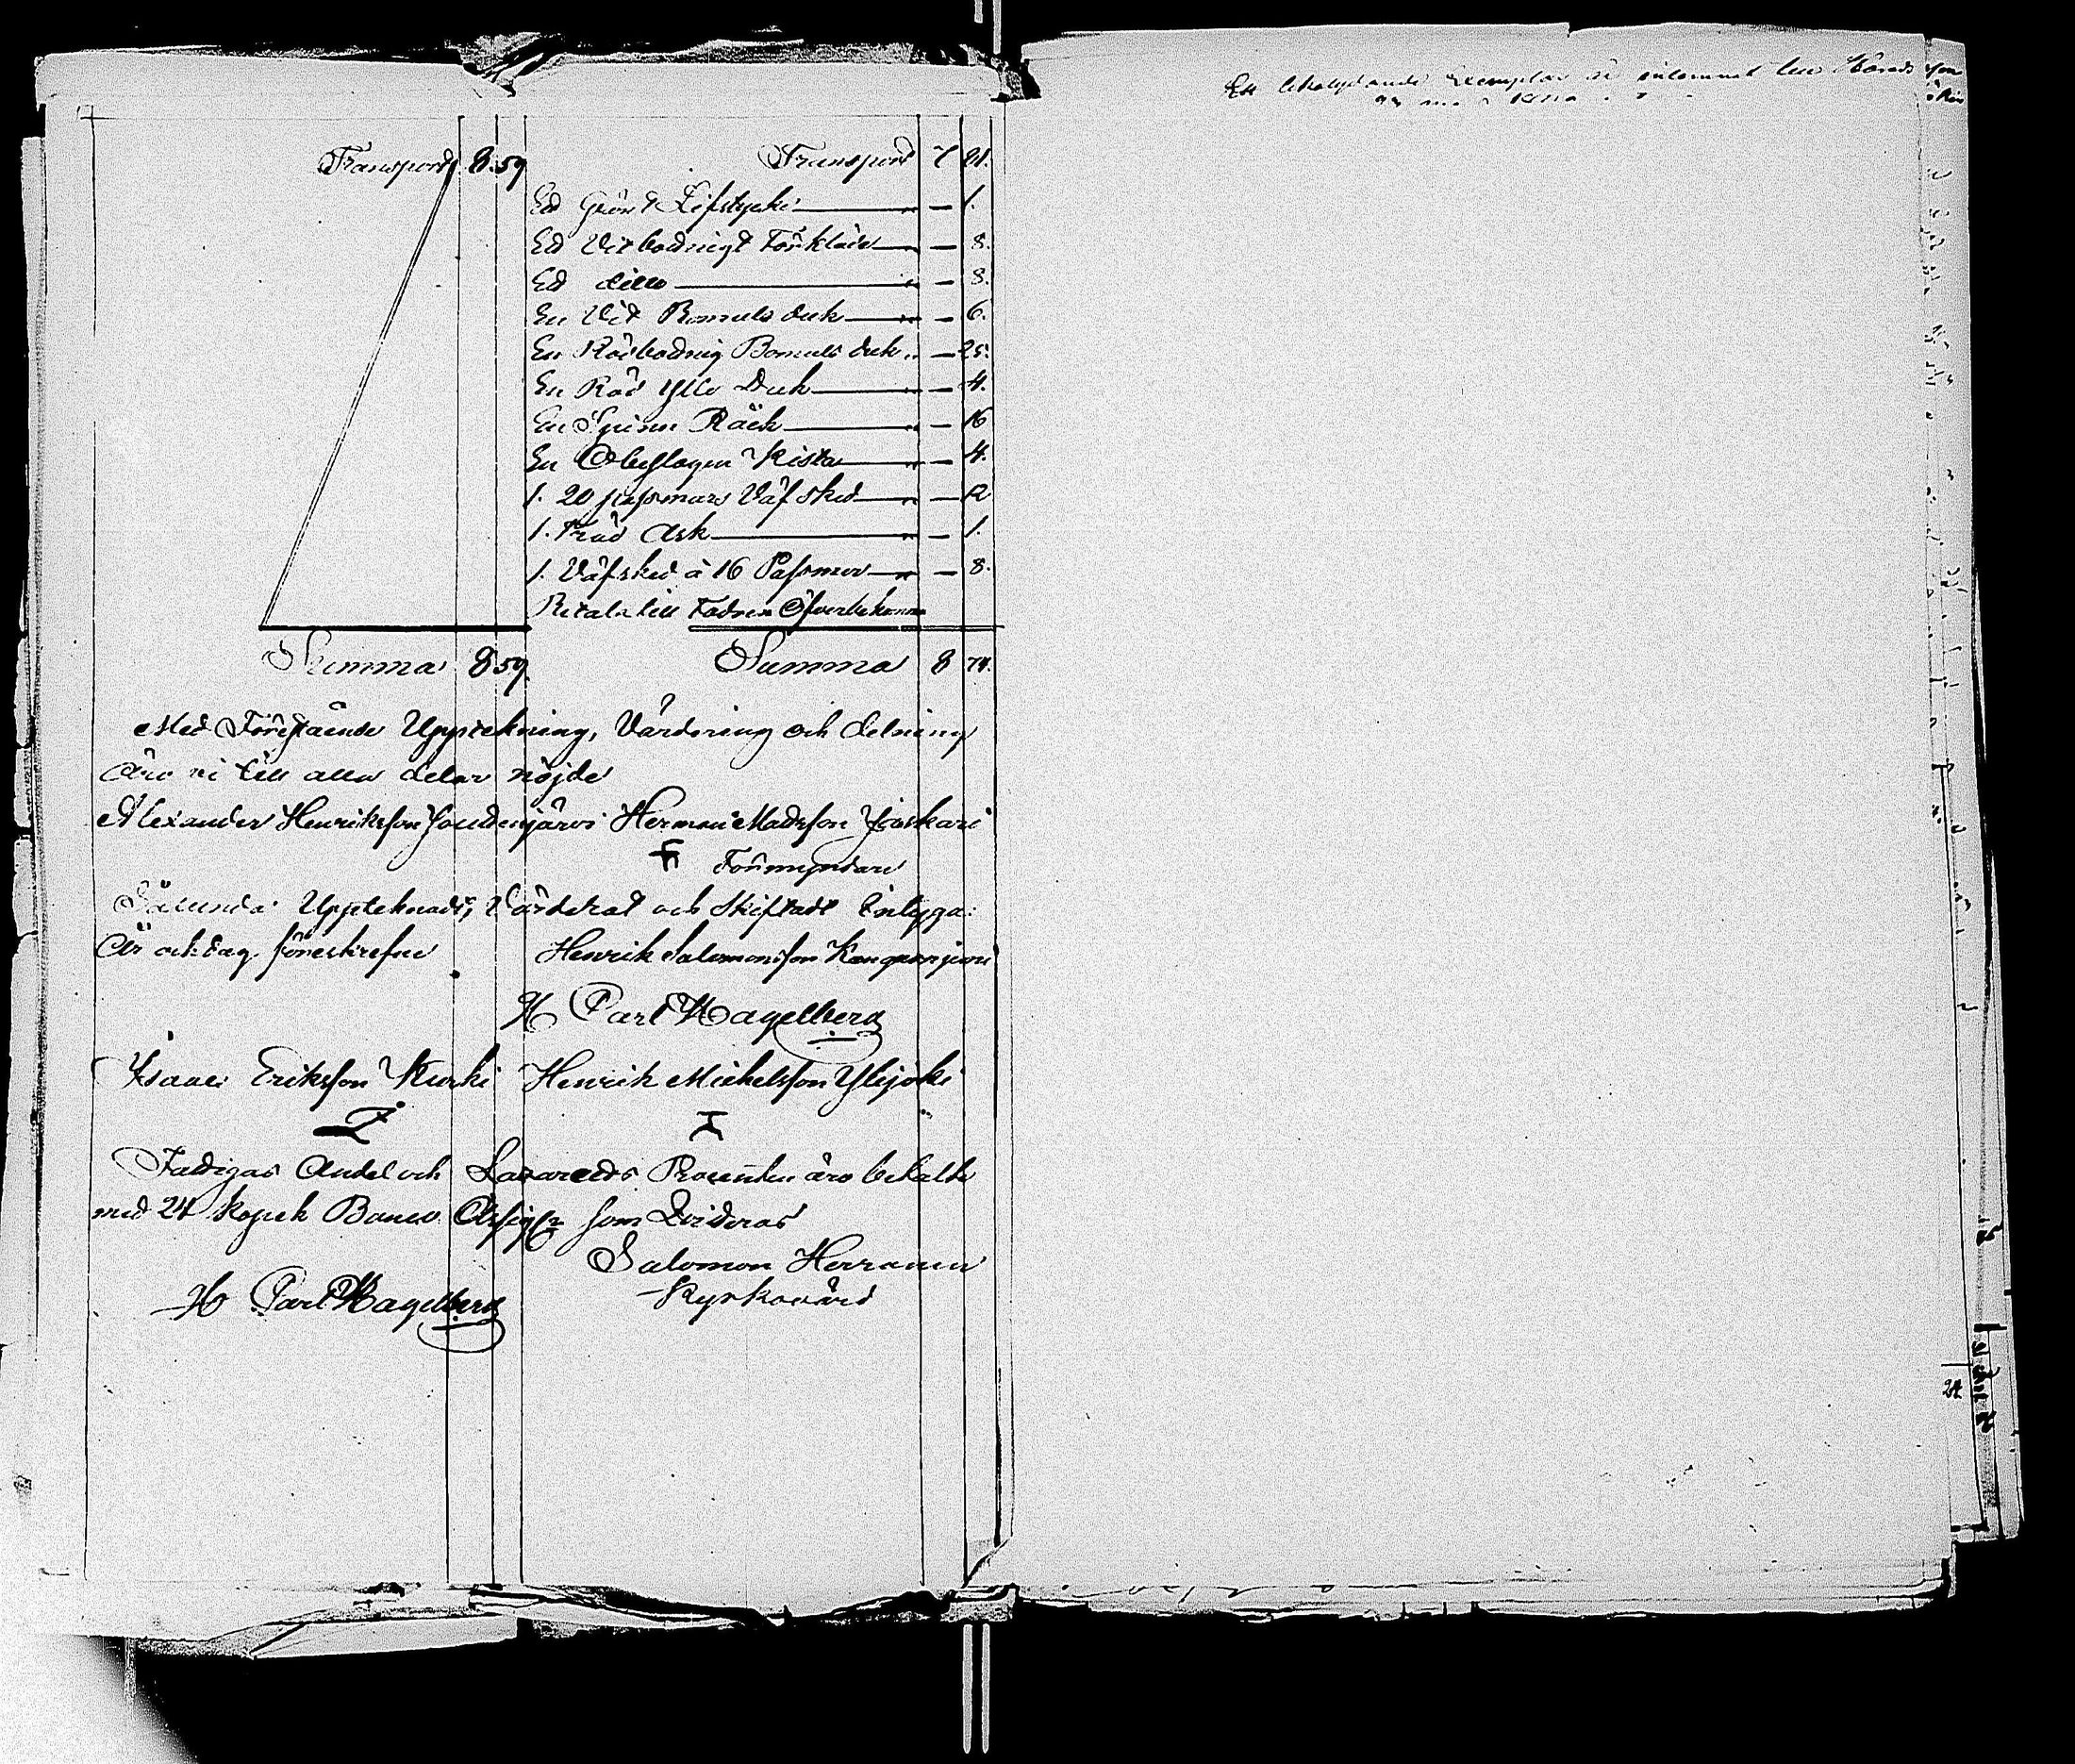 Transport 8.59
Transport 7 81.
Ett Grönt Lifstycke — 1.
Ett Vitbottnigt Förkläde — 8.
Ett ditto — 8.
En Vit Bomuls duk — 6.
En Rödbottnig Bomuls duk — 25.
En Röd Ylle Duk — 4.
En Spinn Råck — 16
En Obeslagen Kista — 4.
1. 20 passmars Väfsked — 12
1. Träd Ask — 1.
1. Väfsked à 16 Passmar — 8.
Betala till Fadren
Summa 8 59.
Summa 8 74.
Med Förestående Uppteckning, Värdering och delning
äro vi till alla delar nöjde
Alexander Henriksson Herman Mattsson
Förmyndare
Sålunda Upptecknadt, Värderat och Skiftadt intyga:
År och dag föreskrefne Henrik Salomonsson
H Carl Hagelberg
Isaac Eriksson Kurki Henrik Michelsson Ylijoki
Fattigas Andel och Lazaretts Procenten äro betalte
med 24 kopek Banco Assign som Qvitteras
Salomon Herranen
Kyrkovärd
H Carl Hagelberg
Ett likalydande Exemplar är inlemnat
24